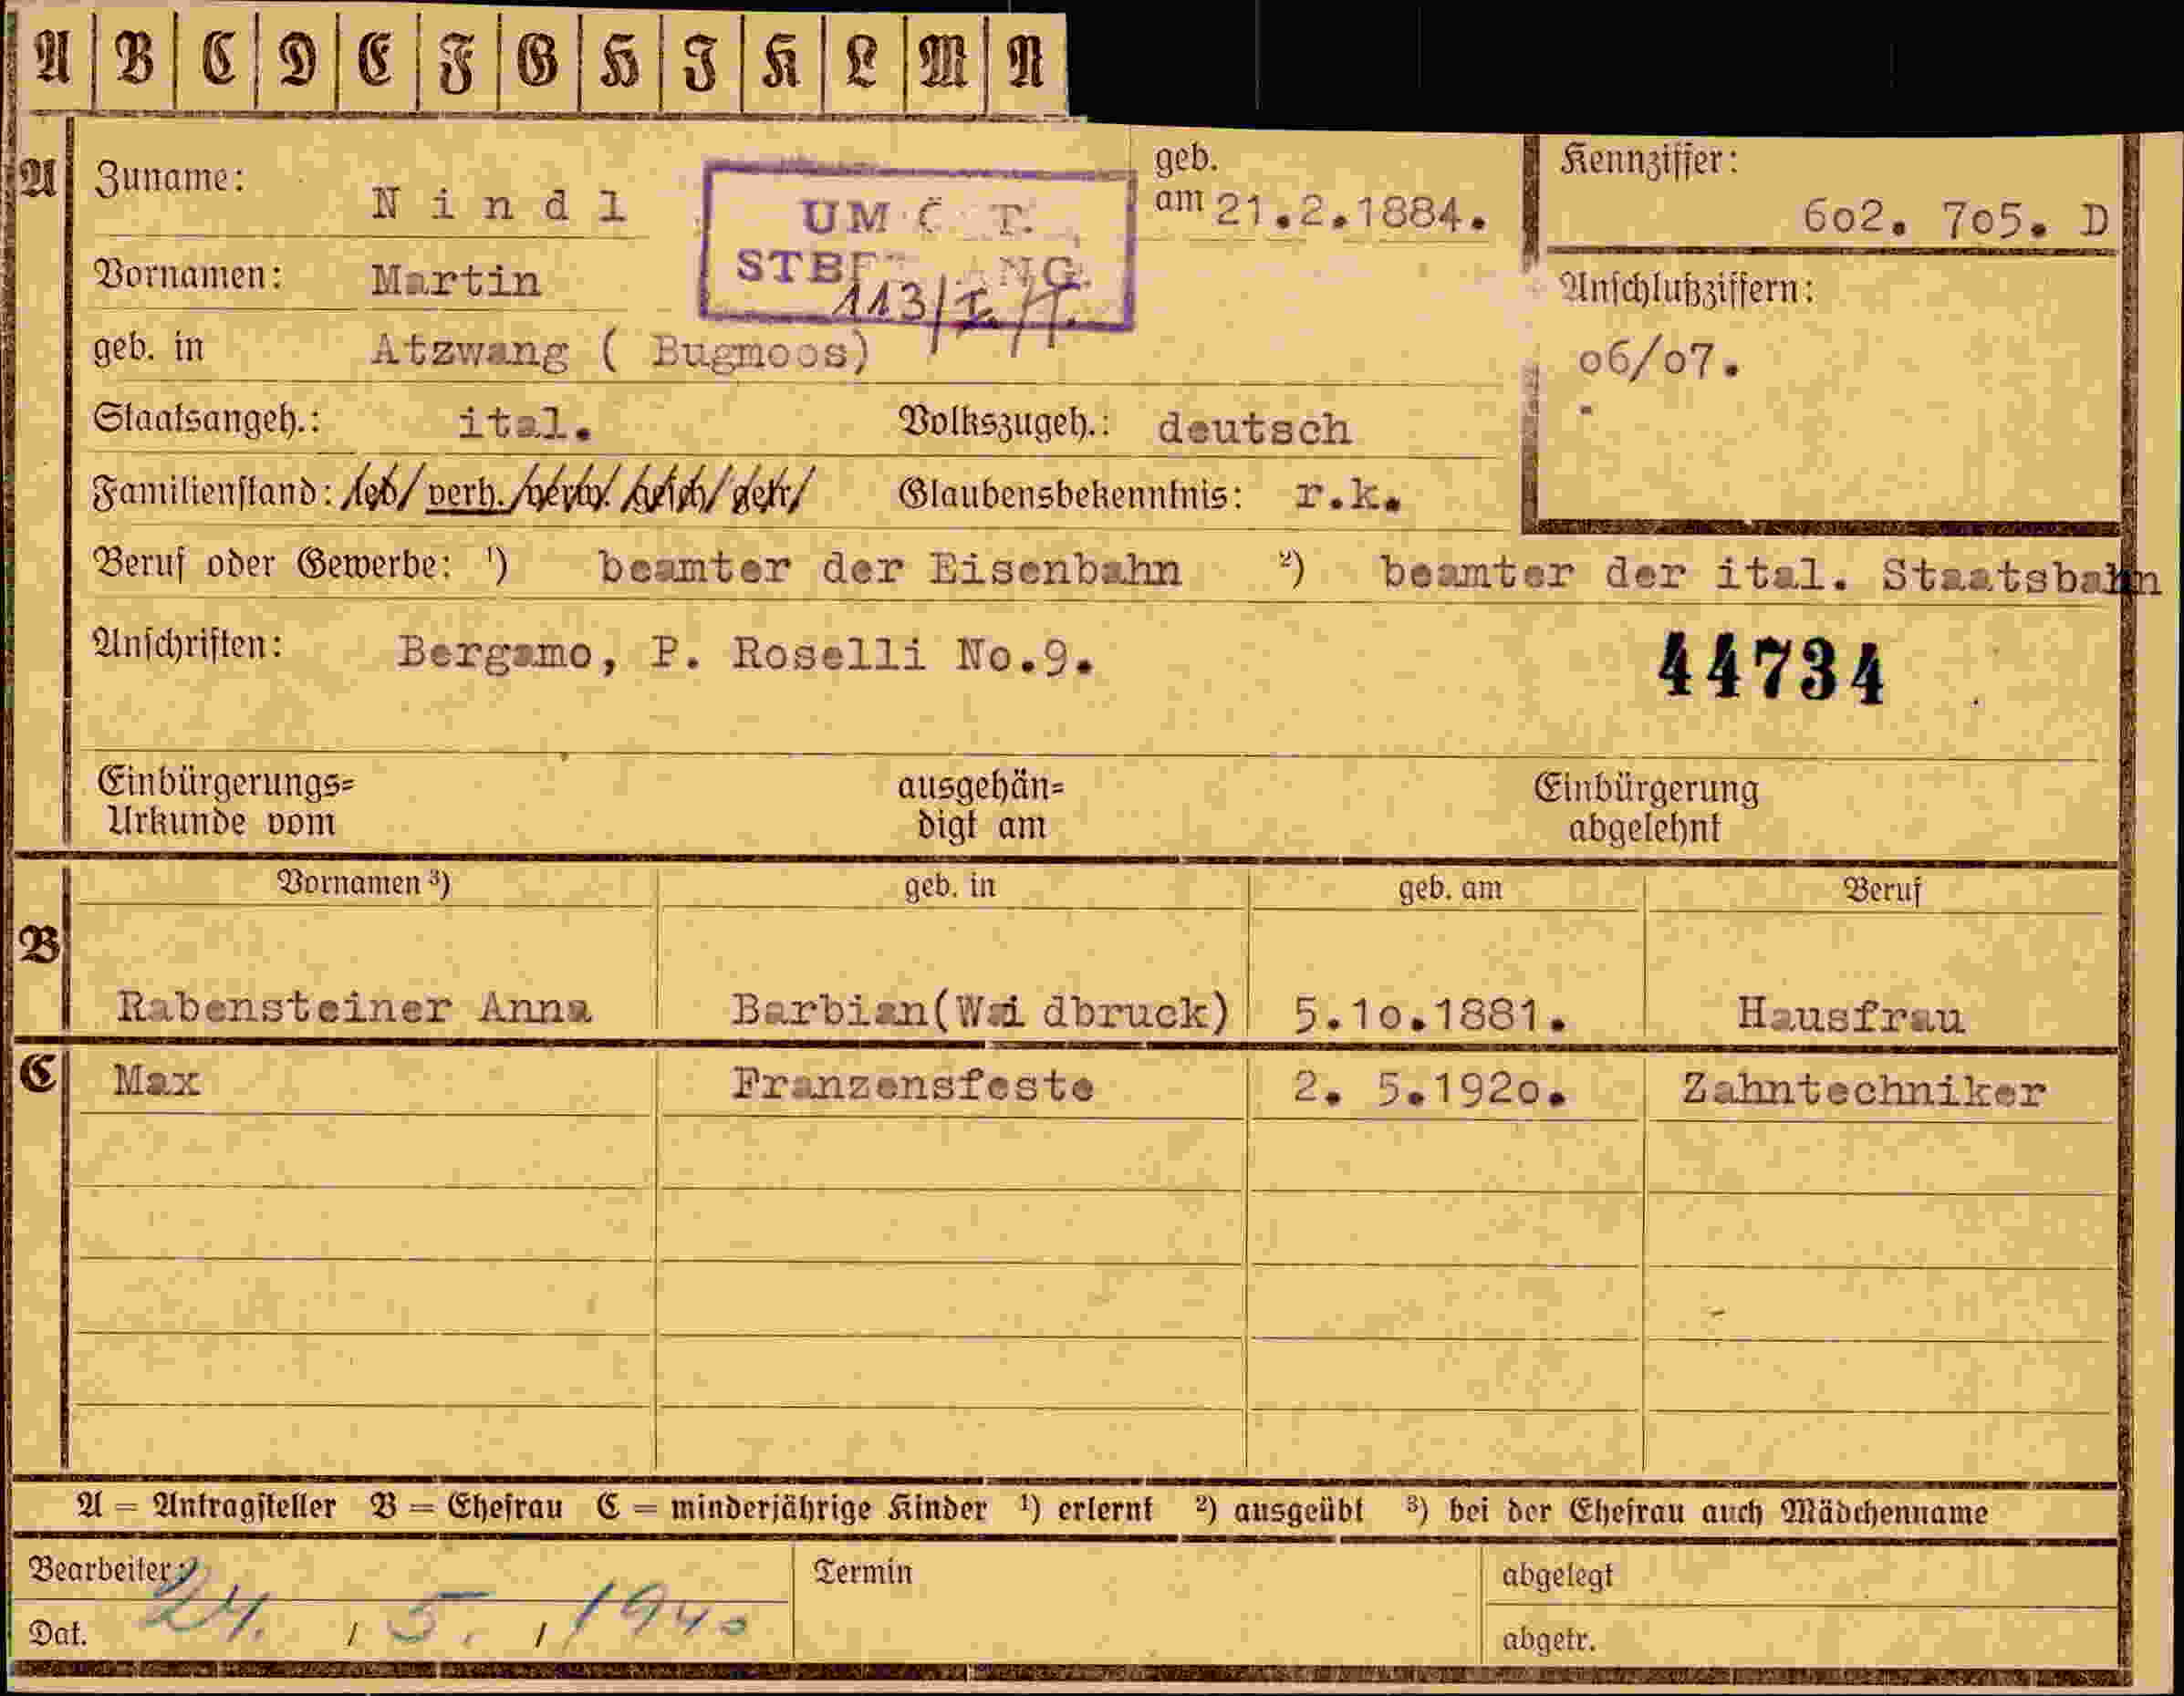 A B C D E F G H I K L M N
A Zuname: Nindl
geb. am 21.2.1884.
Kennziffer: 602. 705. D
UM
113/I./T.
Vornamen: Martin
Anschlußziffern:
geb. in Atzwang ( Bugmoos)
06/07.
Staatsangeh.: ital. Volkszugeh.: deutsch
Familienstand: led/ verh. /verw. /gesch/ getr/ Glaubensbekenntnis: r.k.
Beruf oder Gewerbe: ¹) beamter der Eisenbahn ²) beamter der ital. Staatsbahn
Anschriften: Bergamo, P. Roselli No.9.
44734
Einbürgerungs=
Urkunde vom
ausgehän=
digt am
Einbürgerung
abgelehnt
Vornamen ³) geb. in geb. am Beruf
B
Rabensteiner Anna Barbian(Waidbruck) 5.10.1881. Hausfrau
C Max Franzensfeste 2. 5.1920. Zahntechniker
A = Antragsteller B = Ehefrau C = minderjährige Kinder ¹) erlernt ²) ausgeübt ³) bei der Ehefrau auch Mädchenname
Bearbeiter: Termin abgelegt
Dat. 24. / 5. / 1940 abgetr.